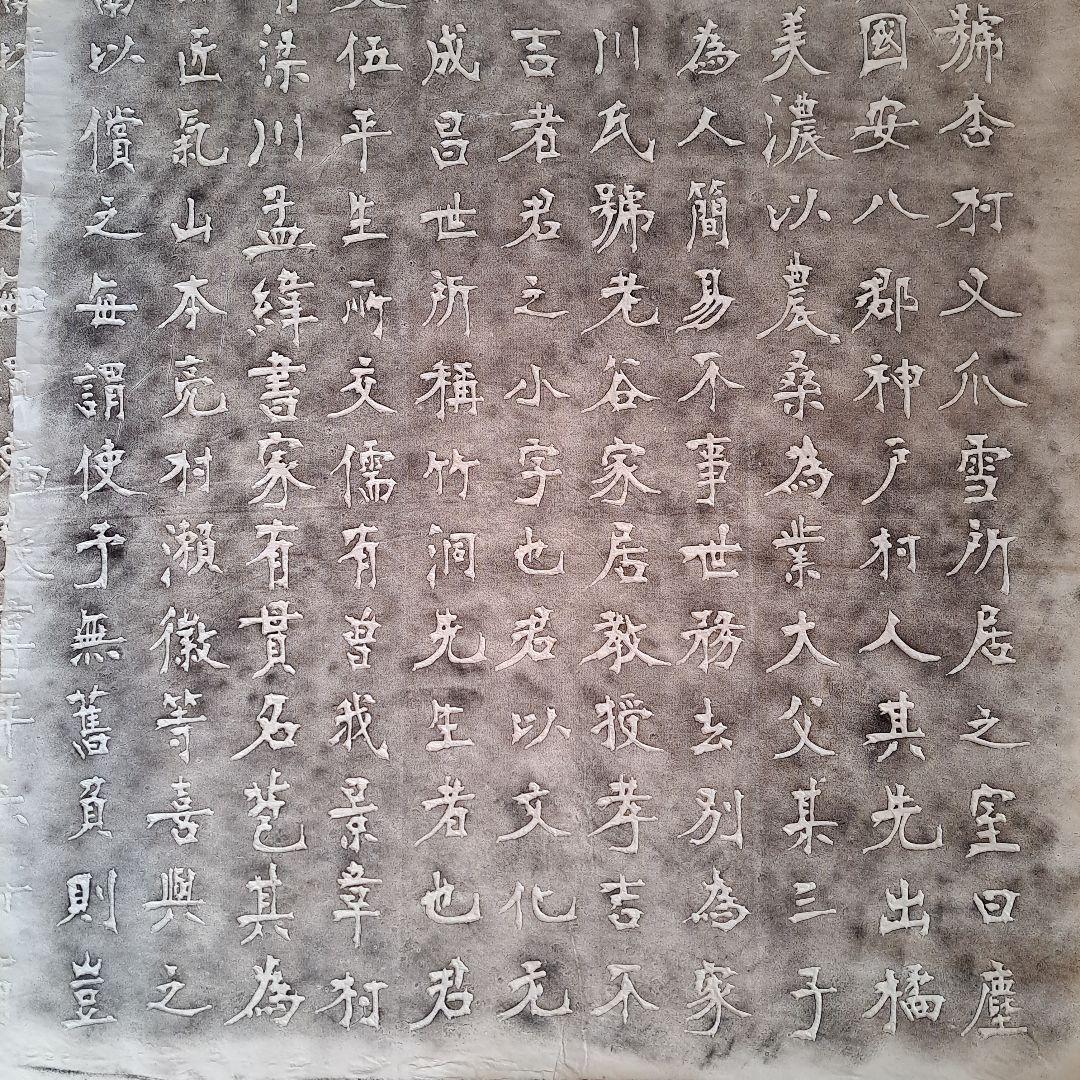 號杏村又爪雪所居之室曰塵
國安八郡神戶村人其先出橘
美濃以農桑為業大父某三子
為人簡易不事世務去別為家
川氏號老谷家居教授孝吉不
吉者君之小字也君以文化元
成昌世所稱竹洞先生者也君
伍平生所交儒有曾我景章村
梁川孟緯書家有貫名苞其為
匠氣山本亮村瀨徽等喜與之
以償之每謂使予無舊負則豈